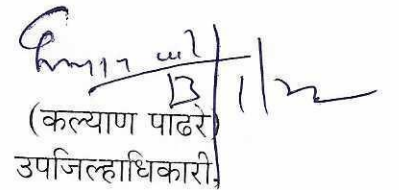 13/1/22
(कल्याण पाढरे)
उपजिल्हाधिकारी,